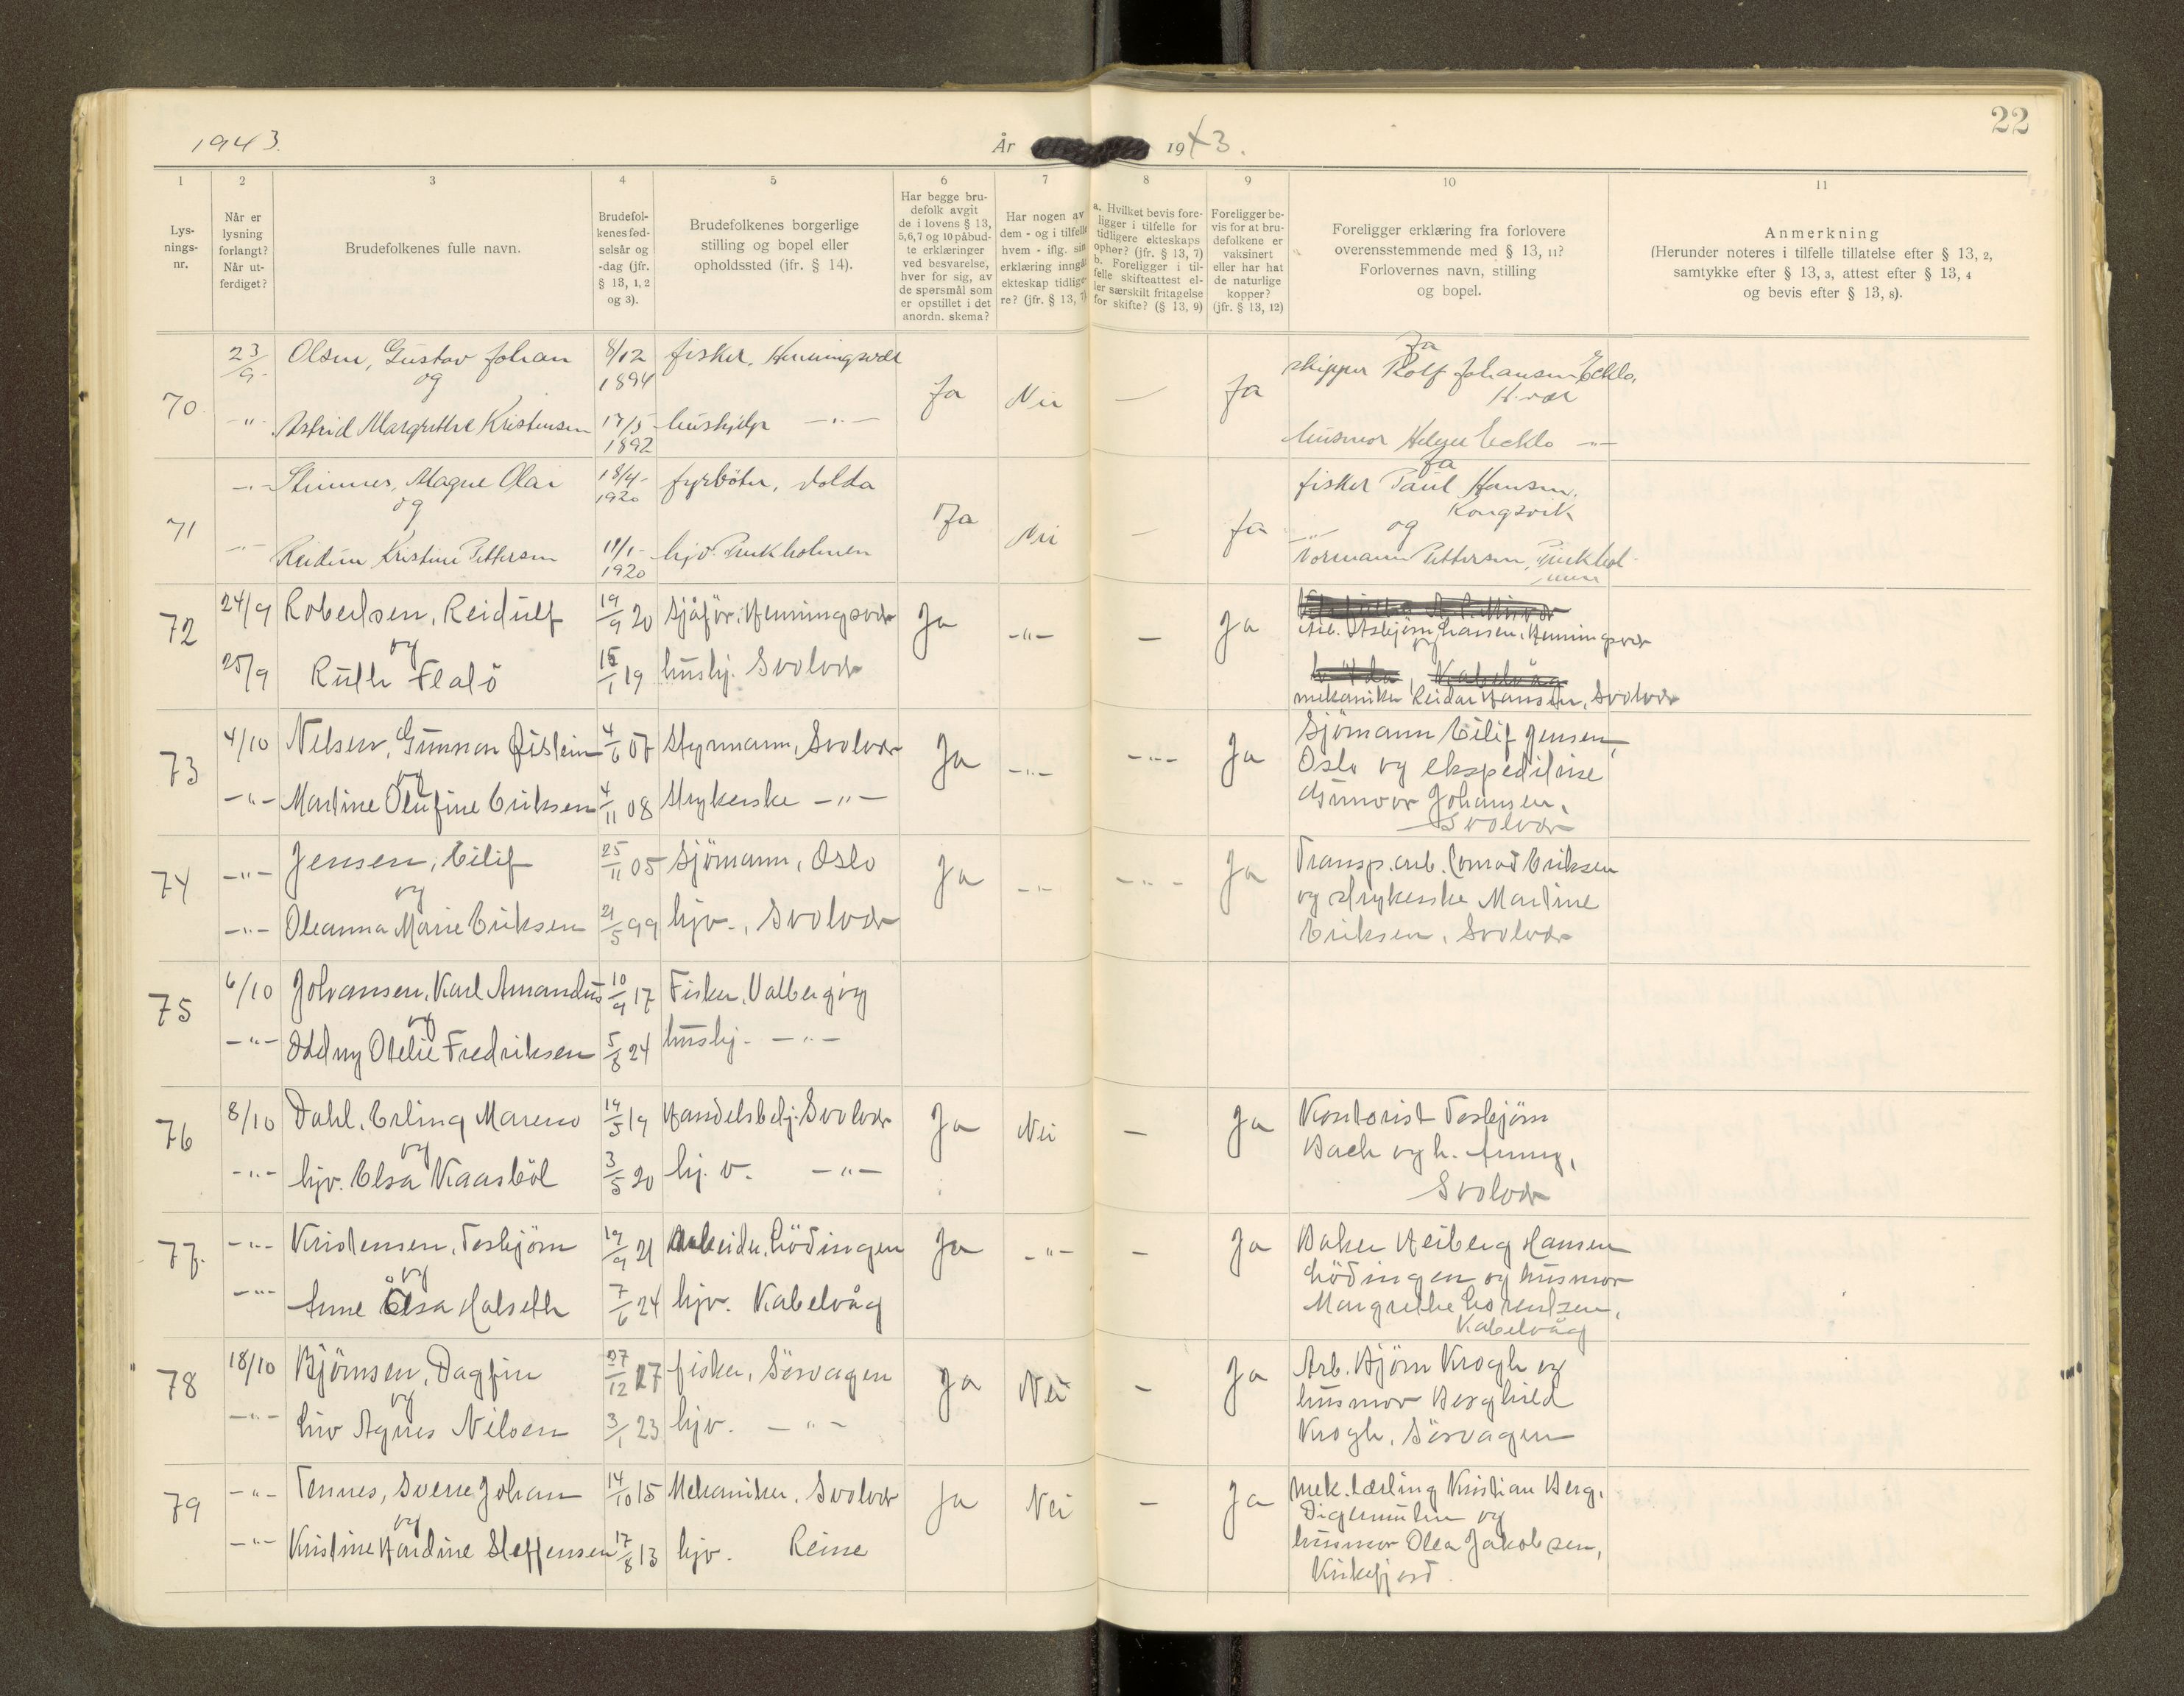 22
1943.
År 1943.
1 2 3 4 5 6 7 8 9 10 11
Lys-
nings-
nr.
Når er
lysning
forlangt?
Når ut-
ferdiget?
Brudefolkenes fulle navn.
Brudefol-
kenes fød-
selsår og
-dag (jfr.
§ 13, 1, 2
og 3).
Brudefolkenes borgerlige
stilling og bopel eller
opholdssted (jfr. § 14).
Har begge bru-
defolk avgit
de i lovens § 13,
5,6,7 og 10 påbud-
te erklæringer
ved besvarelse,
hver for sig, av
de spørsmål som
er opstillet i det
anordn. skema?
Har nogen av
dem - og i tilfelle
hvem - iflg. sin
erklæring inngå
ekteskap tidlige-
re? (jfr. § 13, 7)
a. Hvilket bevis fore-
ligger i tilfelle for
tidligere ekteskaps
ophør? (jfr. § 13, 7)
b. Foreligger i til-
felle skifteattest el-
ler særskilt fritagelse
for skifte? (§ 13, 9)
Foreligger be-
vis for at bru-
defolkene er
vaksinert
eller har hat
de naturlige
kopper?
(jfr. § 13, 12)
Foreligger erklæring fra forlovere
overensstemmende med § 13, 11?
Forlovernes navn, stilling
og bopel.
Anmerkning
(Herunder noteres i tilfelle tillatelse efter § 13, 2,
samtykke efter § 13, 3, attest efter § 13, 4
og bevis efter § 13, 8).
70
23/9 Olsen, Gustav Johan 8/12 1894 fisker, Henningsvær
og
-"- Astrid Margrethe Kristensen 17/5 1892 hushjelp -"-
Ja Nei — Ja
Ja
skipper Rolf Johansen
H.vær
husmor
71
-"- Magne Olai 18/4- 1920 fyrböter,
og
-"- Reidun Kristine Pettersen 11/1- 1920 hjv.
Ja Nei — Ja
Ja
fisker Paul Hansen,
Kongsvik
-"- og
Normann Pettersen,
72
24/9 Robertsen, Reidulf 19/9 20 sjåför, Henningsvær
og
25/9 Ruth Flalö 15/1 19 hushj. Svolvær
Ja -"- — Ja
Arb. Asbjörn Hansen, Henningsvær
og
Kabelvåg
mekaniker Reidar Hansen, Svolvær
73
4/10 Nilsen, Gunnar Øistein 4/6 07 Styrmann, Svolvær
og
-"- Martine Olufine Eriksen 4/11 08 Strykerske -"-
Ja -"- -"- Ja
Sjömann Eilif Jensen,
Oslo og ekspeditrise
Gunvor Johansen,
Svolvær
74
-"- Jensen, Eilif 25/11 05 Sjömann, Oslo
og
-"- Oleanna Marie Eriksen 21/5 99 hjv., Svolvær
Ja -"- -"- Ja
Transp.arb. Conrad Eriksen
og strykerske Martine
Eriksen, Svolvær
75
6/10 Johansen, Karl Amandus 10/9 17 Fisker, Valbergög
og
-"- Oddny Otelie Fredriksen 5/8 24 hushj. -"-
76
8/10 Dahl, Erling Mareno 14/5 19 Handelsbetj. Svolvær
og
-"- hjv. Elsa Kaasböl 3/5 20 hj.v. -"-
Ja Nei — Ja
Kontorist Torbjörn
Bach og h. Anny,
Svolvær
77.
-"- Kristensen, Torbjörn 19/9 21 Arbeider, Lödingen
og
-"- Anne Elsa Halseth 7/6 24 hjv. Kabelvåg
Ja -"- — Ja
Baker Heiberg Hansen
Lödingen og husmor
Margrethe Lorentzen,
Kabelvåg
78
18/10 Björnsen, Dagfin 27/12 17 fisker, Sörvagen
og
-"- hjv Agnes Nilsen 3/1 23 hjv. -"-
Ja Nei — Ja
Arb. Björn Krogh og
husmor Berghild
Krogh, Sörvagen
79
-"- Tennes, Sverre Johan 14/10 15 Mekaniker, Svolvær
og
-"- Kristine Hardine Steffensen 17/8 13 hjv. Reine
Ja Nei — Ja
Mek. lærling Kristian Berg,
Digermulen og
husmor Olea Jakobsen,
Kirkefjord.